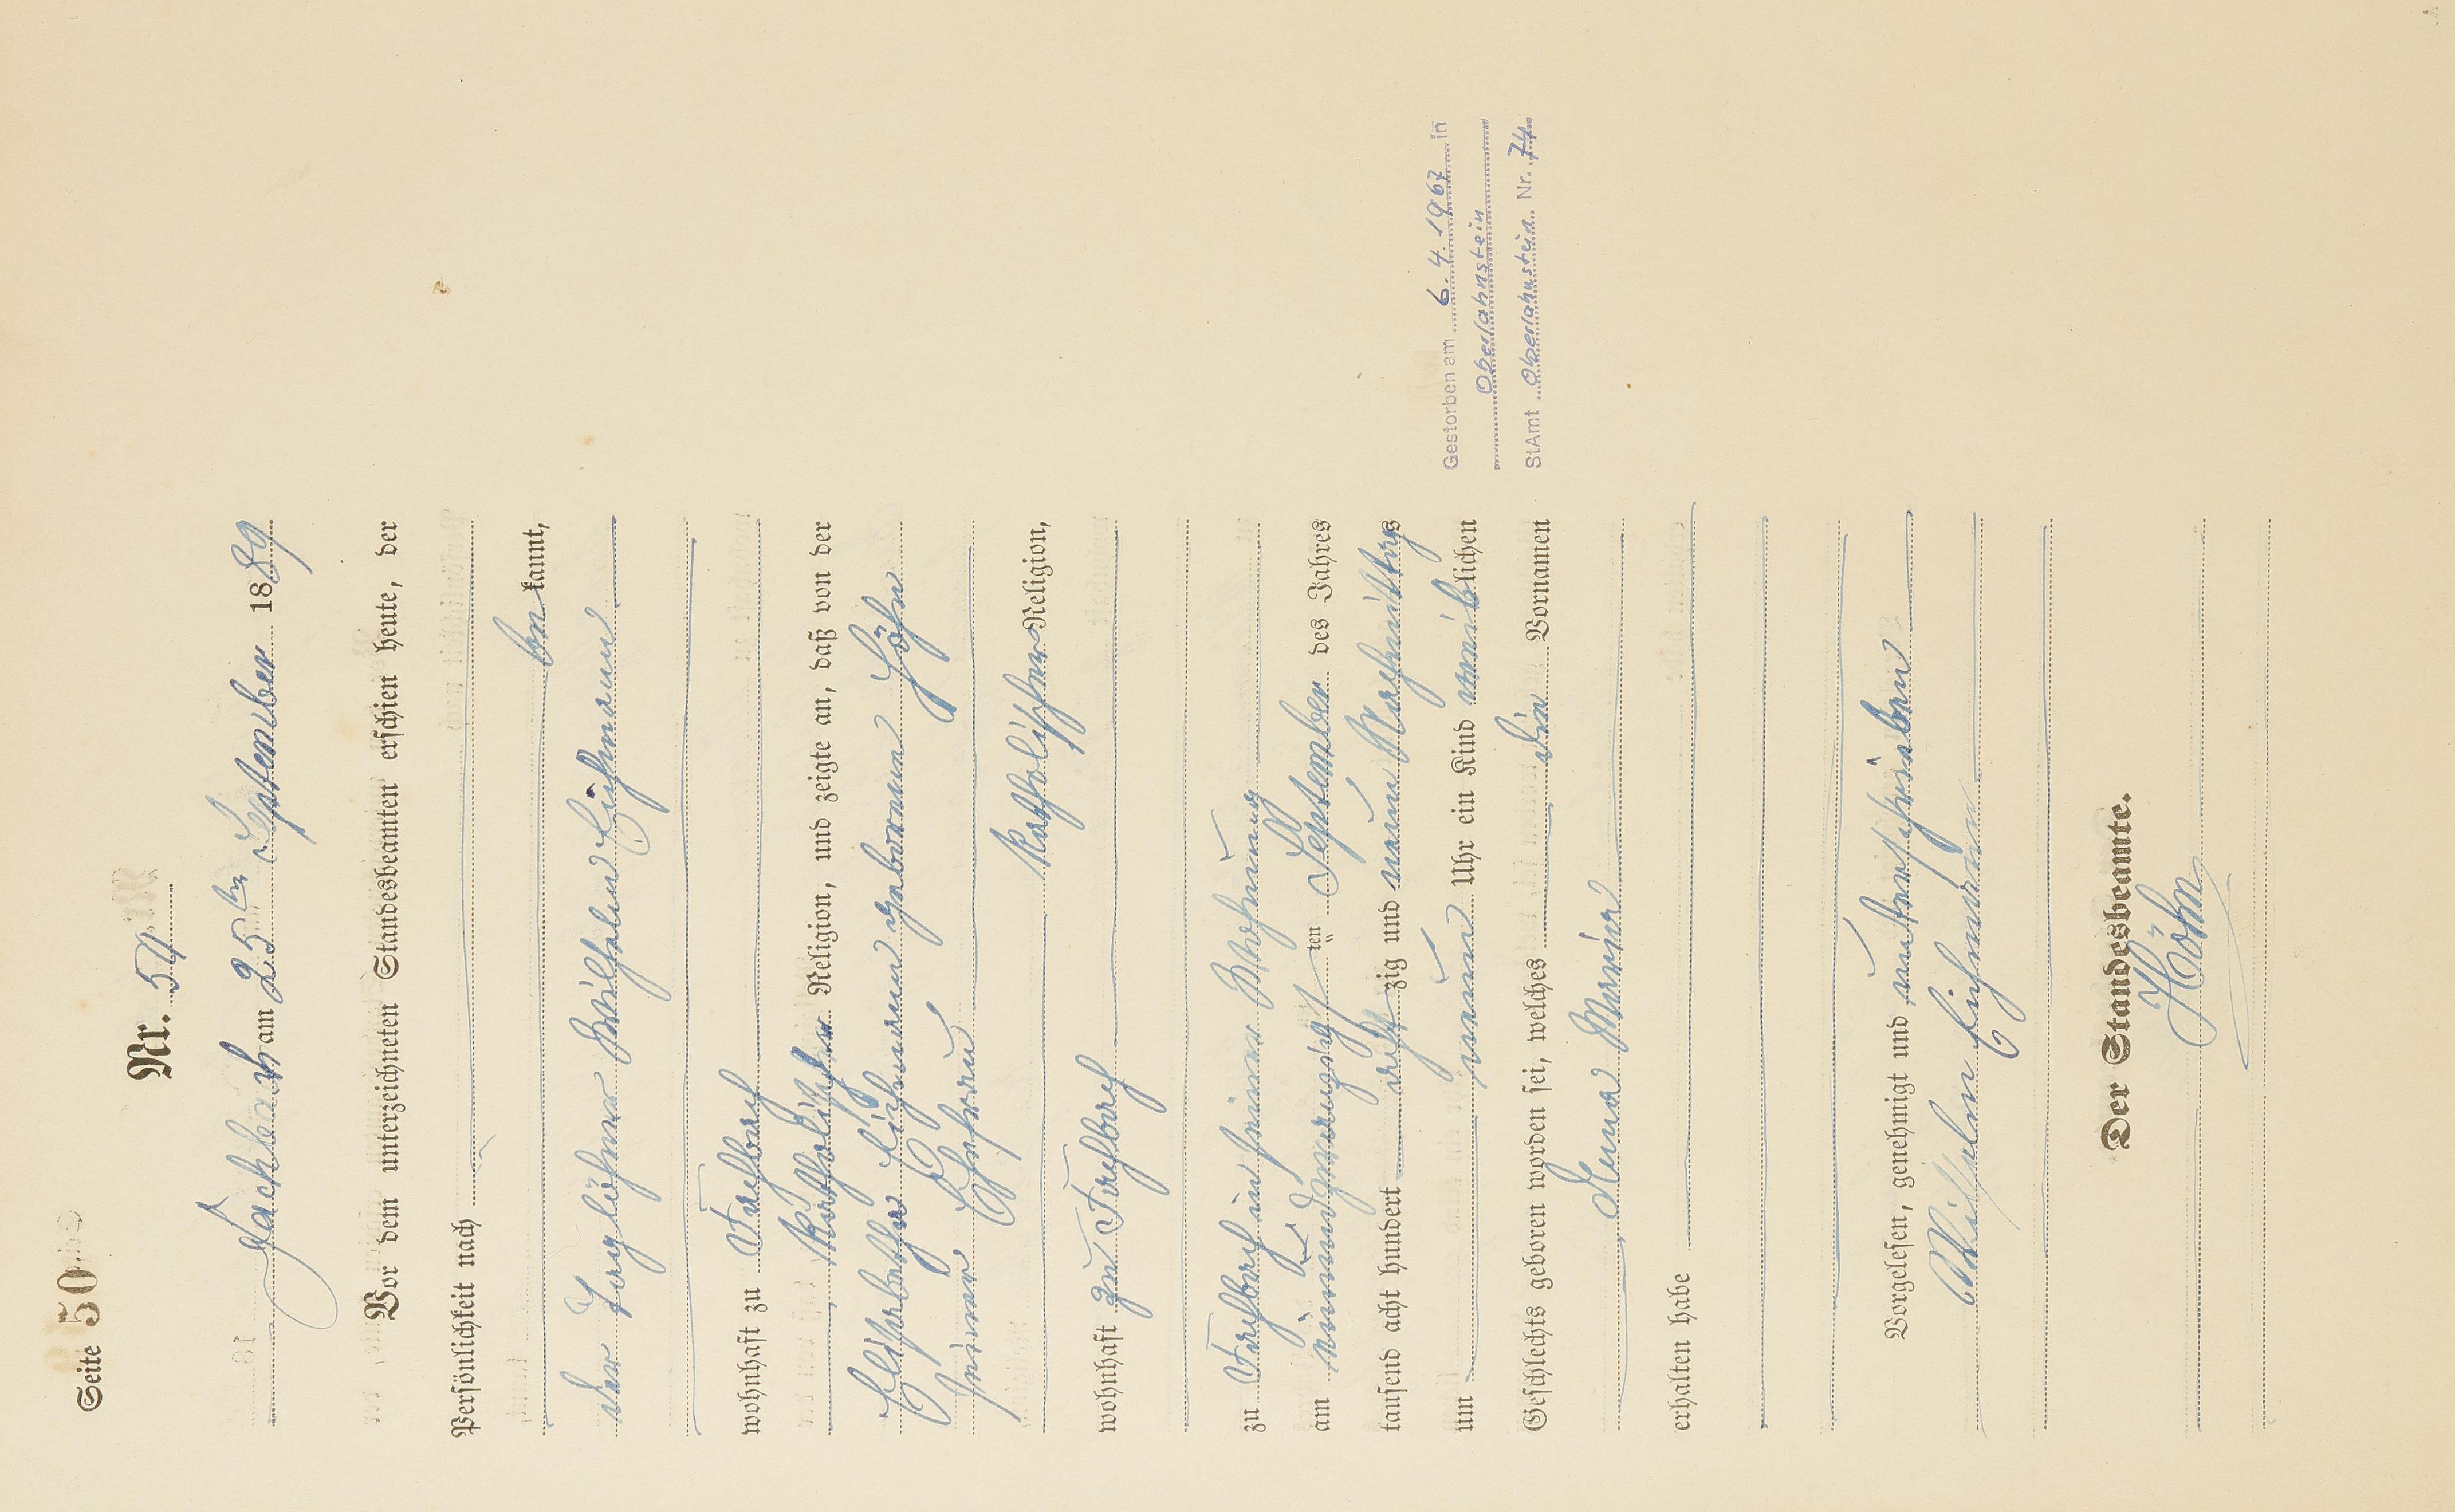 Seite 50
Nr. 54
Fachbach am 25ten September 1889
Vor dem unterzeichneten Standesbeamten erschien heute, der
Persönlichkeit nach
bekannt,
der Taglöhner Wilhelm Eichmann
wohnhaft zu Fachbach
katholischer Religion, und zeigte an, daß von der
Elisabetha Eichmann geborenen Höhn
seiner Ehefrau
katholischer Religion,
wohnhaft zu Fachbach
zu Fachbach in seiner Wohnung
am einundzwanzigsten September des Jahres
tausend acht hundert achtzig und neun Nachmittags
um neun Uhr ein Kind weiblichen
Geschlechts geboren worden sei, welches die Vornamen
Anna Maria
erhalten habe
Vorgelesen, genehmigt und unterschrieben
Wilhelm Eichmann
Der Standesbeamte.
Höhn
Gestorben am 6.4.1967 in
Oberlahnstein
StAmt Oberlahnstein Nr. 74